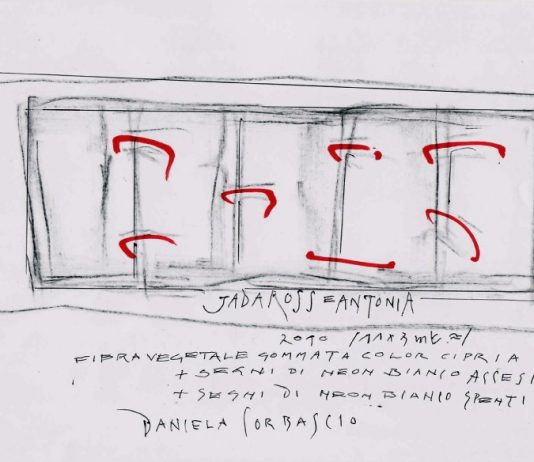 JADAROSS E ANTONIA
FIBRA VEGETALE GOMMATA COLOR CIPRIA
+ SEGNI DI NEON BIANCO ACCESI
+ SEGNI DI NEON BIANCO SPENTI
DANIELA CORBASCIO